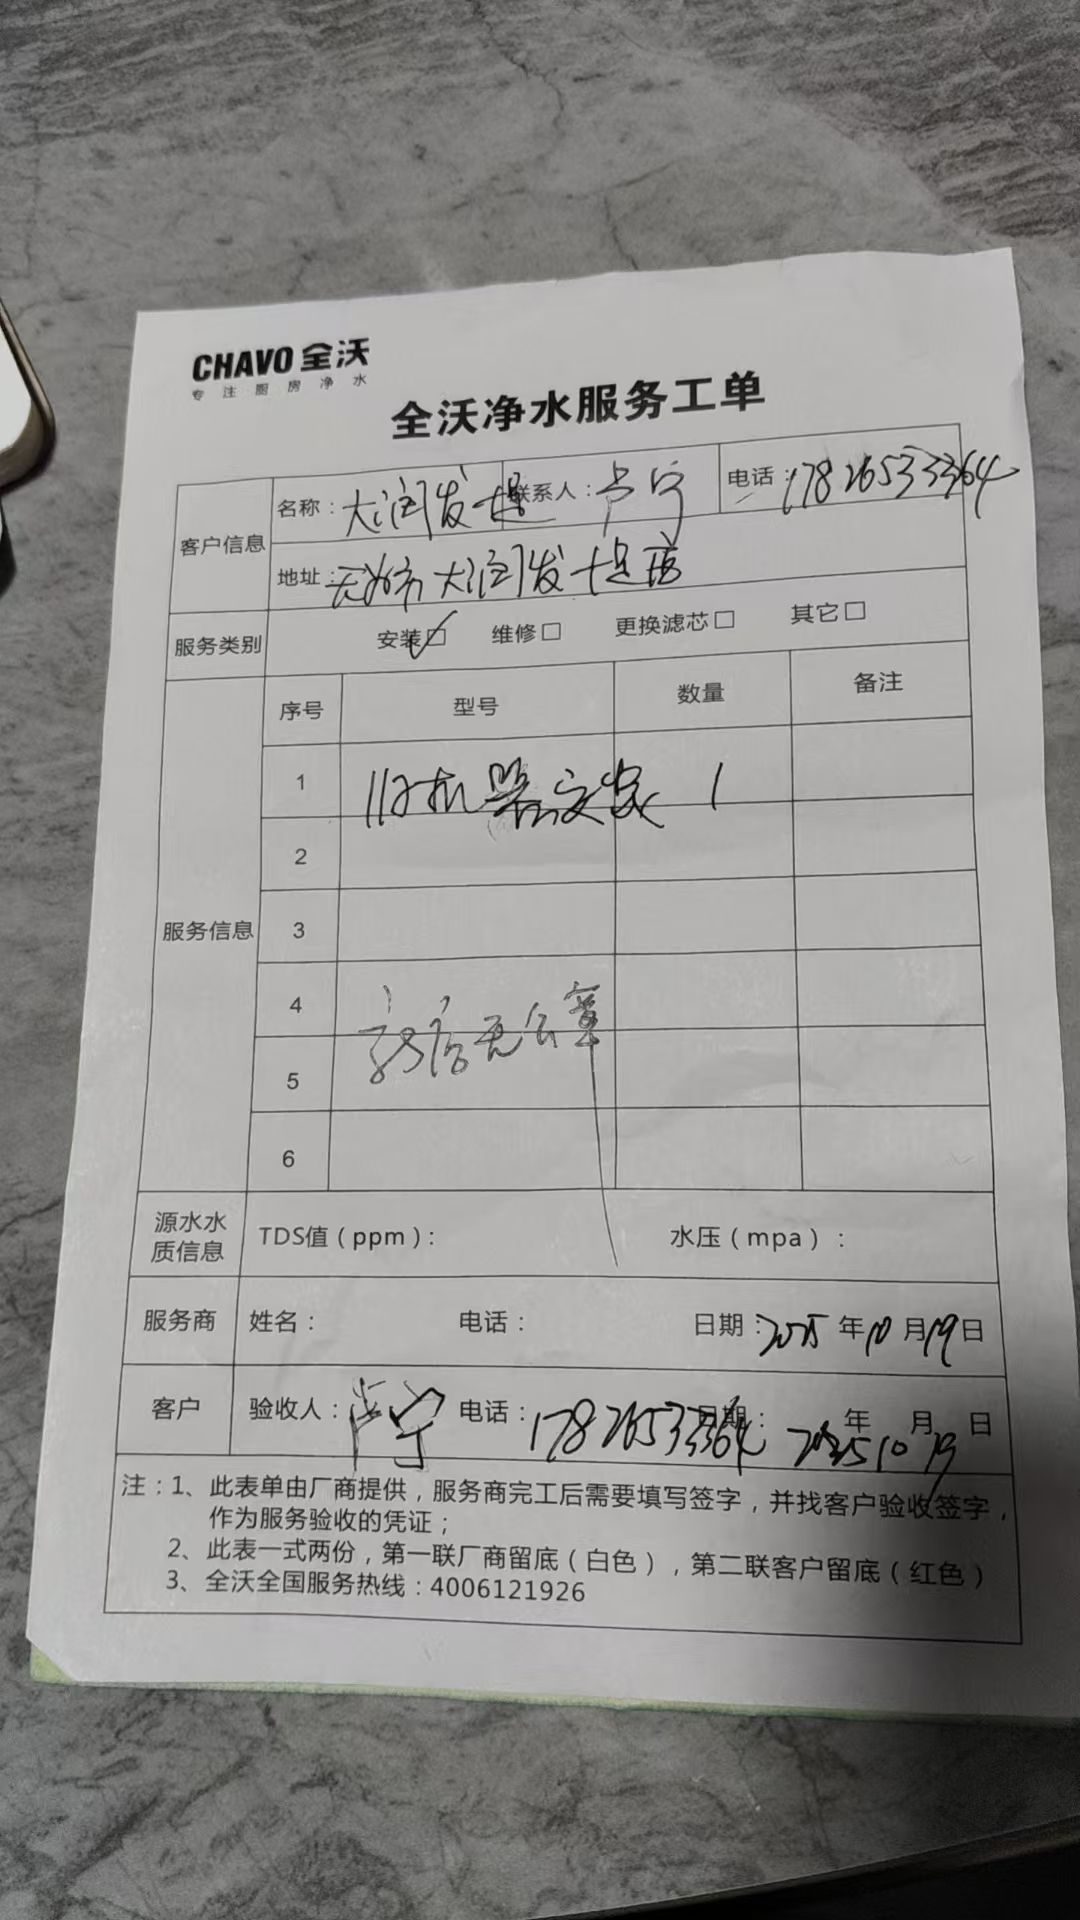 CHAVO 全沃
专注厨房净水
全沃净水服务工单
客户信息
名称：大润发堰 联系人：卢宁 电话：17826533364
地址：无锡市大润发堰店
服务类别 安装☑ 维修□ 更换滤芯□ 其它□
服务信息
序号 型号 数量 备注
1 旧机器安装 1
2
3
4
该店无公章
5
6
源水水质信息 TDS值（ppm）： 水压（mpa）：
服务商 姓名： 电话： 日期：2025年10月19日
客户 验收人：卢宁 电话：17826533364 日期： 2025年10月19日
注：1、此表单由厂商提供，服务商完工后需要填写签字，并找客户验收签字，
作为服务验收的凭证；
2、此表一式两份，第一联厂商留底（白色），第二联客户留底（红色）
3、全沃全国服务热线：4006121926